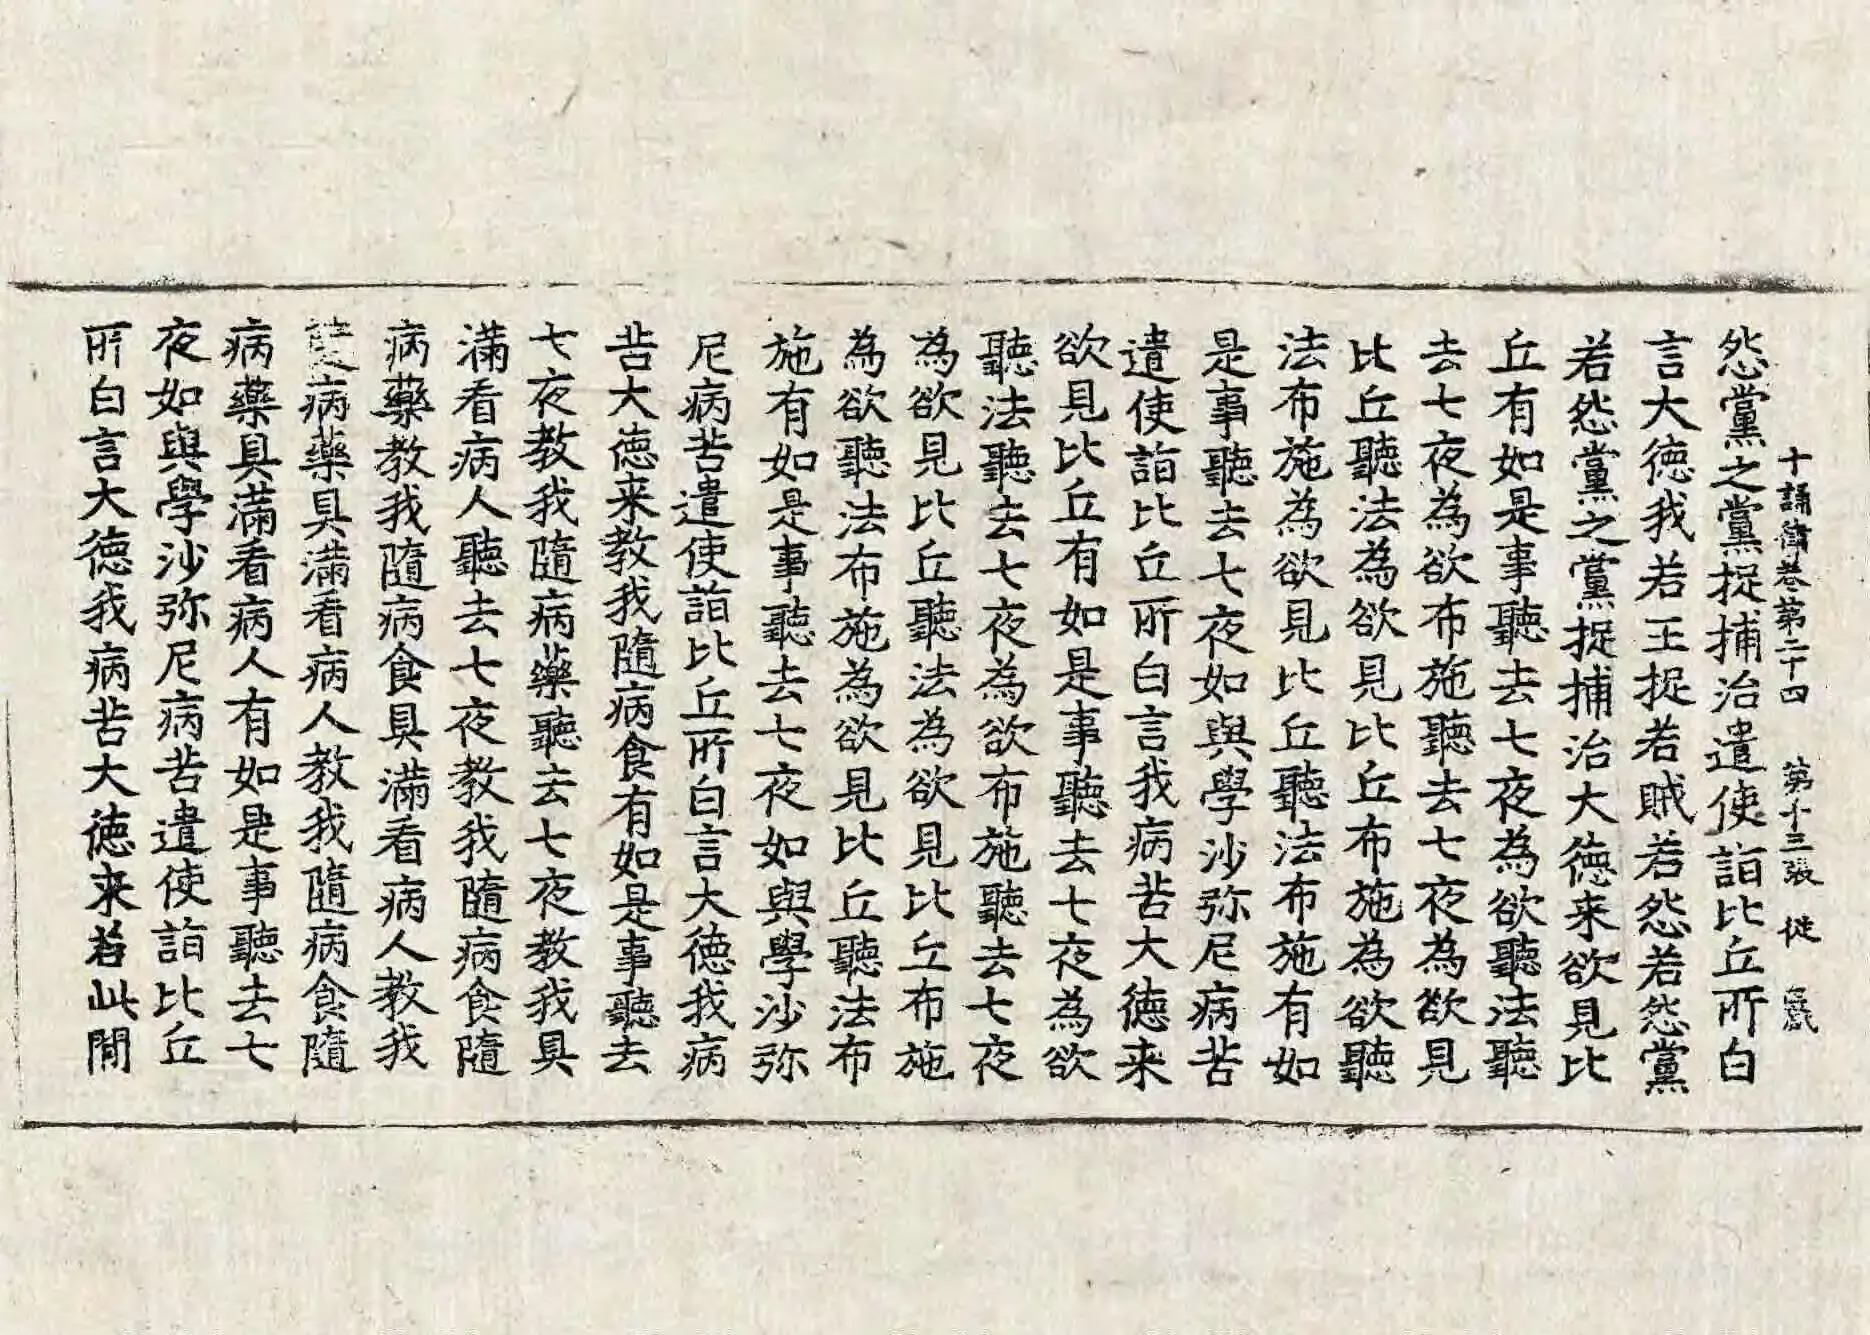 十誦律卷第二十四 第十三張 従
怨黨之黨捉捕治遣使詣比丘所白
言大徳我若王捉若賊若怨若怨黨
若怨黨之黨捉捕治大徳来欲見比
丘有如是事聽去七夜為欲聽法聽
去七夜為欲布施聽去七夜為欲見
比丘聽法為欲見比丘布施為欲聽
法布施為欲見比丘聽法布施有如
是事聽去七夜如與學沙弥尼病苦
遣使詣比丘所白言我病苦大徳来
欲見比丘有如是事聽去七夜為欲
聽法聽去七夜為欲布施聽去七夜
為欲見比丘聽法為欲見比丘布施
為欲聽法布施為欲見比丘聽法布
施有如是事聽去七夜如與學沙弥
尼病苦遣使詣比丘所白言大徳我病
苦大徳来教我隨病食有如是事聽去
七夜教我隨病藥聽去七夜教我具
滿看病人聽去七夜教我隨病食隨
病藥教我隨病食具滿看病人教我
隨病藥具滿看病人教我隨病食隨
病藥具滿看病人有如是事聽去七
夜如與學沙弥尼病苦遣使詣比丘
所白言大徳我病苦大徳来若此間